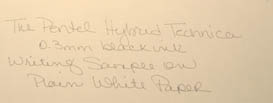 The Pentel Hybrid Technica
0.3mm black ink
Writing Sample on
Plain White Paper